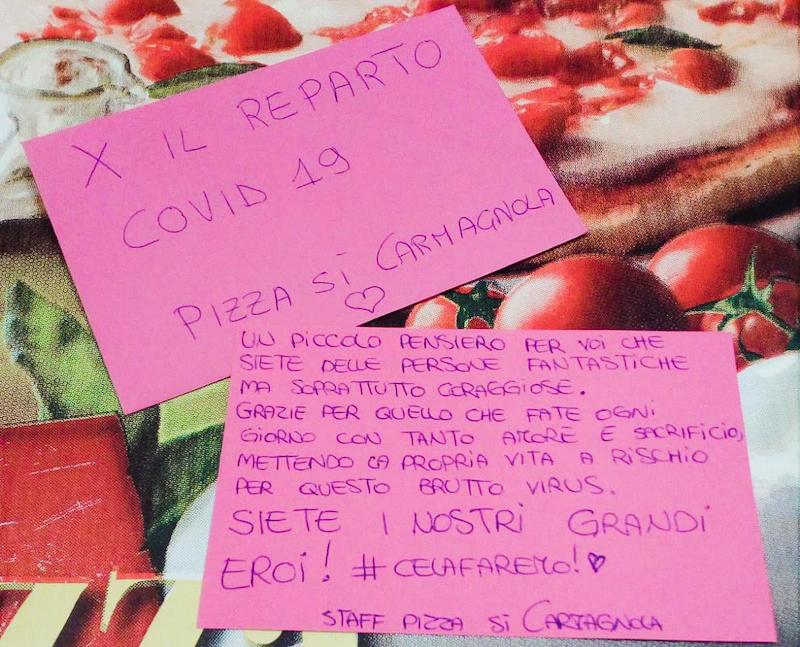 X IL REPARTO
COVID 19
PIZZA Sì CARMAGNOLA
♡
UN PICCOLO PENSIERO PER VOI CHE
SIETE DELLE PERSONE FANTASTICHE
MA SOPRATTUTTO CORAGGIOSE.
GRAZIE PER QUELLO CHE FATE OGNI
GIORNO CON TANTO AMORE E SACRIFICIO,
METTENDO LA PROPRIA VITA A RISCHIO
PER QUESTO BRUTTO VIRUS.
SIETE I NOSTRI GRANDI
EROI! #CELAFAREMO!♡
STAFF PIZZA Sì CARMAGNOLA